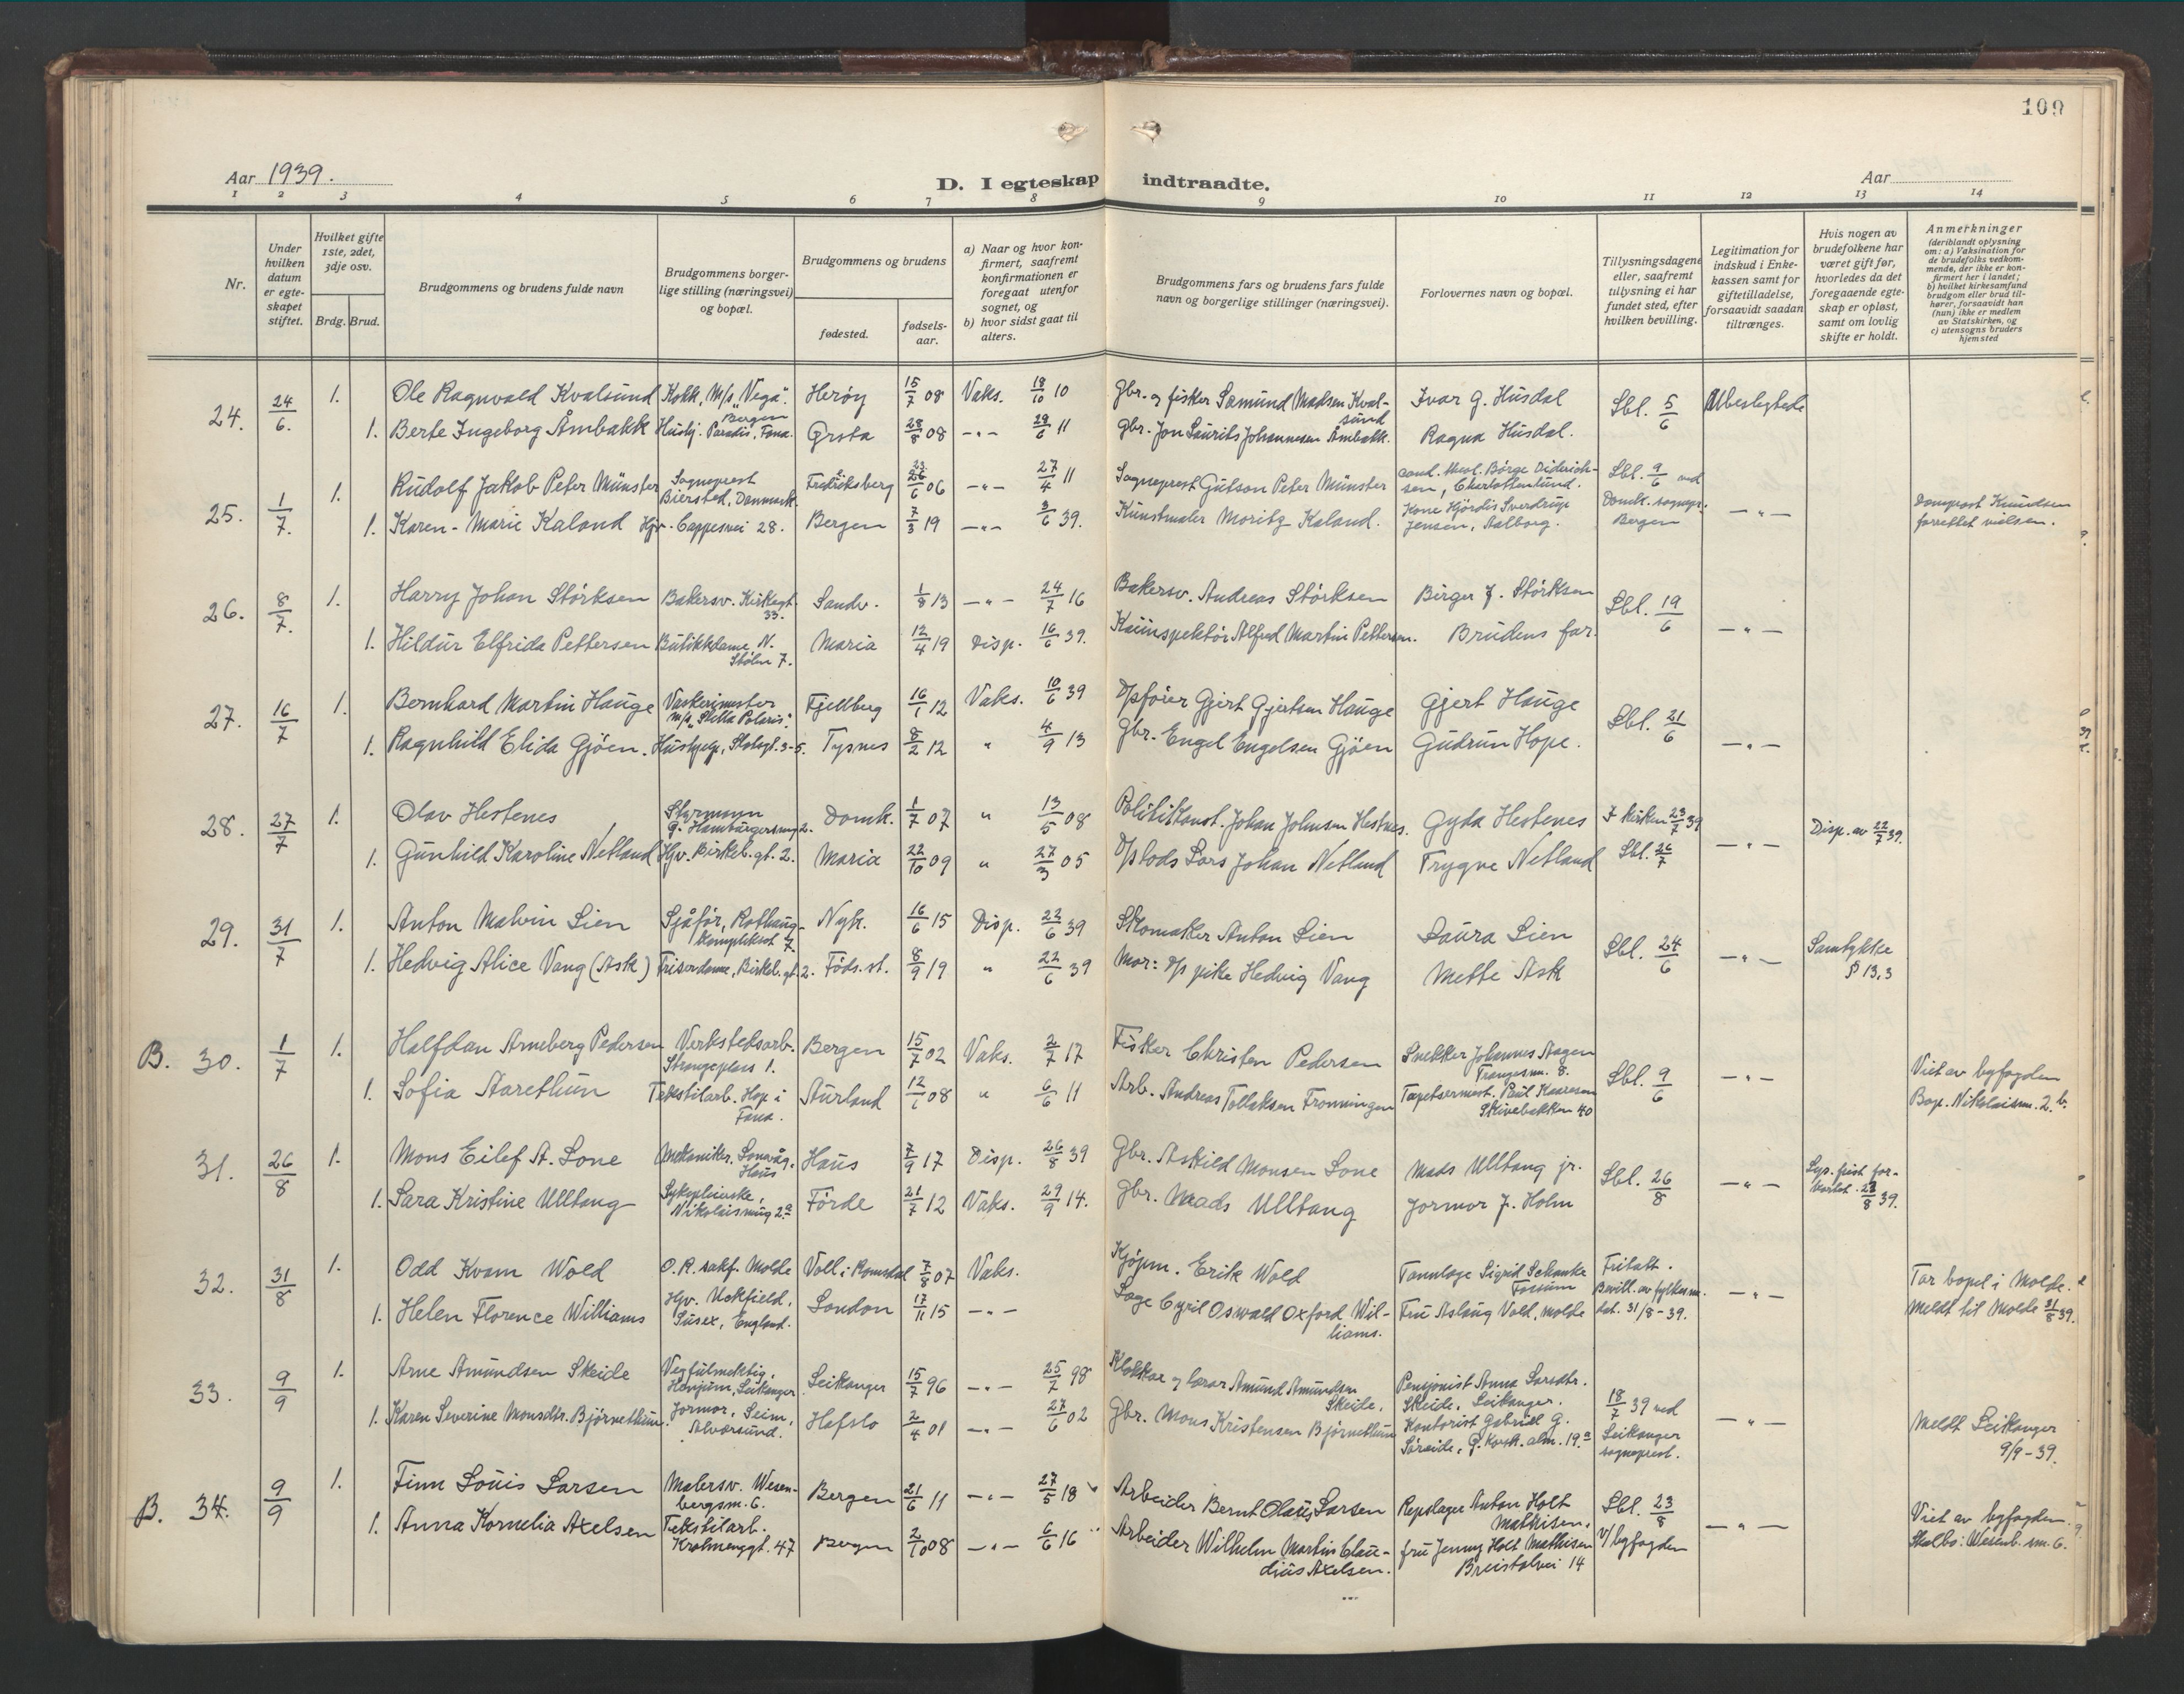 109
Aar 1939.
D. I egteskap indtraadte.
Aar
1 2 3 4 5 6 7 8 9 10 11 12 13 14
Nr.
Under hvilken datum er egteskapet stiftet.
Hvilket gifte 1ste, 2det, 3dje osv.
Brdg. Brud.
Brudgommens og brudens fulde navn
Brudgommens borgerlige stilling (næringsvei) og bopæl.
Brudgommens og brudens
fødested.
fødselsaar.
a) Naar og hvor konfirmert, saafremt konfirmationen er foregaat utenfor sognet, og
b) hvor sidst gaat til alters.
Brudgommens fars og brudens fars fulde navn og borgerlige stillinger (næringsvei).
Forlovernes navn og bopæl.
Tillysningsdagene eller, saafremt tillysning ei har fundet sted, efter hvilken bevilling.
Legitimation for indskud i Enkekassen samt for giftetilladelse, forsaavidt saadan tiltrænges.
Hvis nogen av brudefolkene har været gift før, hvorledes da det foregaaende egteskap er opløst, samt om lovlig skifte er holdt.
Anmerkninger (deriblandt oplysning om: a) Vaksination for de brudefolks vedkommende, der ikke er konfirmert her i landet; b) hvilket kirkesamfund brudgom eller brud tilhører, forsaavidt han (hun) ikke er medlem av Statskirken, og c) utensogns bruders hjemsted
24. 24/6. 1. Ole Ragnvald Kvalsund Kokk, M/s "Vega". Bergen Herøy 15/7 08 Vaks. 18/10 10 Gbr. og fisker Samund Madsen Kvalsund Ivar G. Husdal Sbl. 5/6 Ubeslegtede
1. Berte Ingeborg Åmbakk Hushj. Paradis, Fana. Ørsta 28/8 08 -"- 29/6 11 Gbr. Jon Laurits Johannesen Åmbakk. Ragna Husdal.
25. 1/7. 1. Rudolf Jakob Peter Münster Sogneprest Biersted, Danmark. Fredriksberg 26/6 06 -"- 27/4 11 Sogneprest Gutson Peter Münster cand. theol. Børge Diderichsen, Charlottenlund. Sbl. 9/6 ved
1. Karen-Marie Kaland Hjv. Cappesvei 28. Bergen 7/3 19 -"- 3/6 39. Kunstmaler Moritz Kaland. Kone Hjördis Sverdrup Jensen, Aalborg. Domk. sognepr. Bergen -"- Domprost Knudsen forrettet vielsen.
26. 8/7. 1. Harry Johan Störksen Bakersv. Kirkegt. 33. Sandv. 1/8 13 -"- 24/7 16 Bakersv. Andreas Störksen Birger J. Störksen Sbl. 19/6
1. Hildur Elfrida Pettersen Butikkdame, N. Stølen 7. Maria 12/4 19 Disp. 16/6 39. Kaiinspektör Alfred Martin Pettersen. Brudens far. -"-
27. 16/7 1. Bernhard Martin Hauge Vaskerimester m/s "Stella Polaris". Fjellberg 16/1 12 Vaks. 10/6 39 Gjert Gjertsen Hauge Gjert Hauge Sbl. 21/6
1. Ragnhild Elida Gjöen. Hushjelp, Skolegt. 3-5. Tysnes 8/2 12 " 4/9 13 Gbr. Engel Engelsen Gjöen Gudrun Hope. -"-
28. 27/7 1. Olav Hestenes Styrmann G. Hamburgersmug 2. Domk. 1/7 07 " 13/5 08 Politikonst. Johan Johnsen Hestnes. Gyda Hestenes I kirken 23/7 39 Disp. av 22/7 39.
1. Gunhild Karoline Netland Hjv. Birkeb. gt. 2. Maria 22/10 09 " 27/3 05 Lars Johan Netland Trygve Netland Sbl. 26/7 -"-
29. 31/7 1. Anton Malvin Lien Sjåför, Rothaugkomplekset 7. Nykr. 16/6 15 Disp. 22/6 39 Skomaker Anton Lien Laura Lien Sbl. 24/6 Samtykke § 13,3
1. Hedvig Alice Vang (Ask) Frisördame, Birkeb. gt. 2. Föds. st. 8/9 19 " 22/6 39 Mor: pike Hedvig Vang Mette Ask -"-
B. 30. 1/7 1. Halfdan Arneberg Pedersen Verkstedsarb. Strangeplass 1. Bergen 15/7 02 Vaks. 2/7 17 Fisker Christen Pedersen Snekker Johannes Aagen Trangesm. 8. Sbl. 9/6 -"- Viet av byfogden
1. Sofia Aarethun Tekstilarb. Hop i Fana. Aurland 12/1 08 " 6/6 11 Arb. Andreas Tollaksen Fronningen Tapetsermest. Paul Kaaresen Skivebakken 40 Bop. Nikolaism. 2.b.
31. 26/8 1. Mons Eilef A. Lone Mekaniker, Lonevåg, Haus Haus 7/9 17 Disp. 26/8 39 Gbr. Askild Monsen Lone Mads Ulltang jr. Sbl. 26/8 Lys. frist forkortet. 28/8 39.
1. Sara Kristine Ulltang Sykepleierske, Nikolaismug 2a Förde 21/7 12 Vaks. 29/9 14. Gbr. Mads Ulltang Jormor J. Holm -"-
32. 31/8 1. Odd Kvam Wold O.R. sakf. Molde Voll i Romsdal 7/8 07 Vaks. Kjöpm. Erik Wold Tannlæge Sigrid Schanke Fritatt.
1. Helen Florence Williams Hjv. Uckfield, Susex, England. London 17/11 15 -"- Læge Cyril Oswald Oxford Williams. Fru Aslaug Vold, Molde Bevill. av fylkesm. dat. 31/8-39. -"- Tar bopel i Molde. Meldt til Molde 31/8 39.
33. 9/9 1. Arne Amundsen Skeide Vegfulmektig, Henjum, Leikanger Leikanger 15/7 96 -"- 25/7 98 Klokkar og lærar Amund Amundsen Skeide, Pensjonist Anna Larsdtr. Skeide, Leikanger. 18/7 39 ved
1. Karen Severine Monsdtr. Björnethun Jormor, Seim, Alversund. Hafslo 2/4 01 -"- 27/6 02 Gbr. Mons Kristensen Björnethun Kontorist Gabriel G. Söreide, G. Kork. alm. 19a Leikanger sogneprest. -"- Meldt Leikanger 9/9-39.
B. 34. 9/9 1. Finn Louis Larsen Malersv. Wesenbergsm. 6. Bergen 21/6 11 -"- 27/5 18 Arbeider Bernt Olaus Larsen Repslager Anton Holt Mathisen. Sbl. 23/8
1. Anna Kornelia Axelsen Tekstilarb. Krohnenggt. 47 Bergen 2/10 08 -"- 6/6 16 Arbeider Wilhelm Martin Claudius Axelsen. fru Jenny Holt Mathisen Breistølvei 14 v/ byfogden -"- Viet av byfogden. Skal bo: Wesenb. sm. 6.